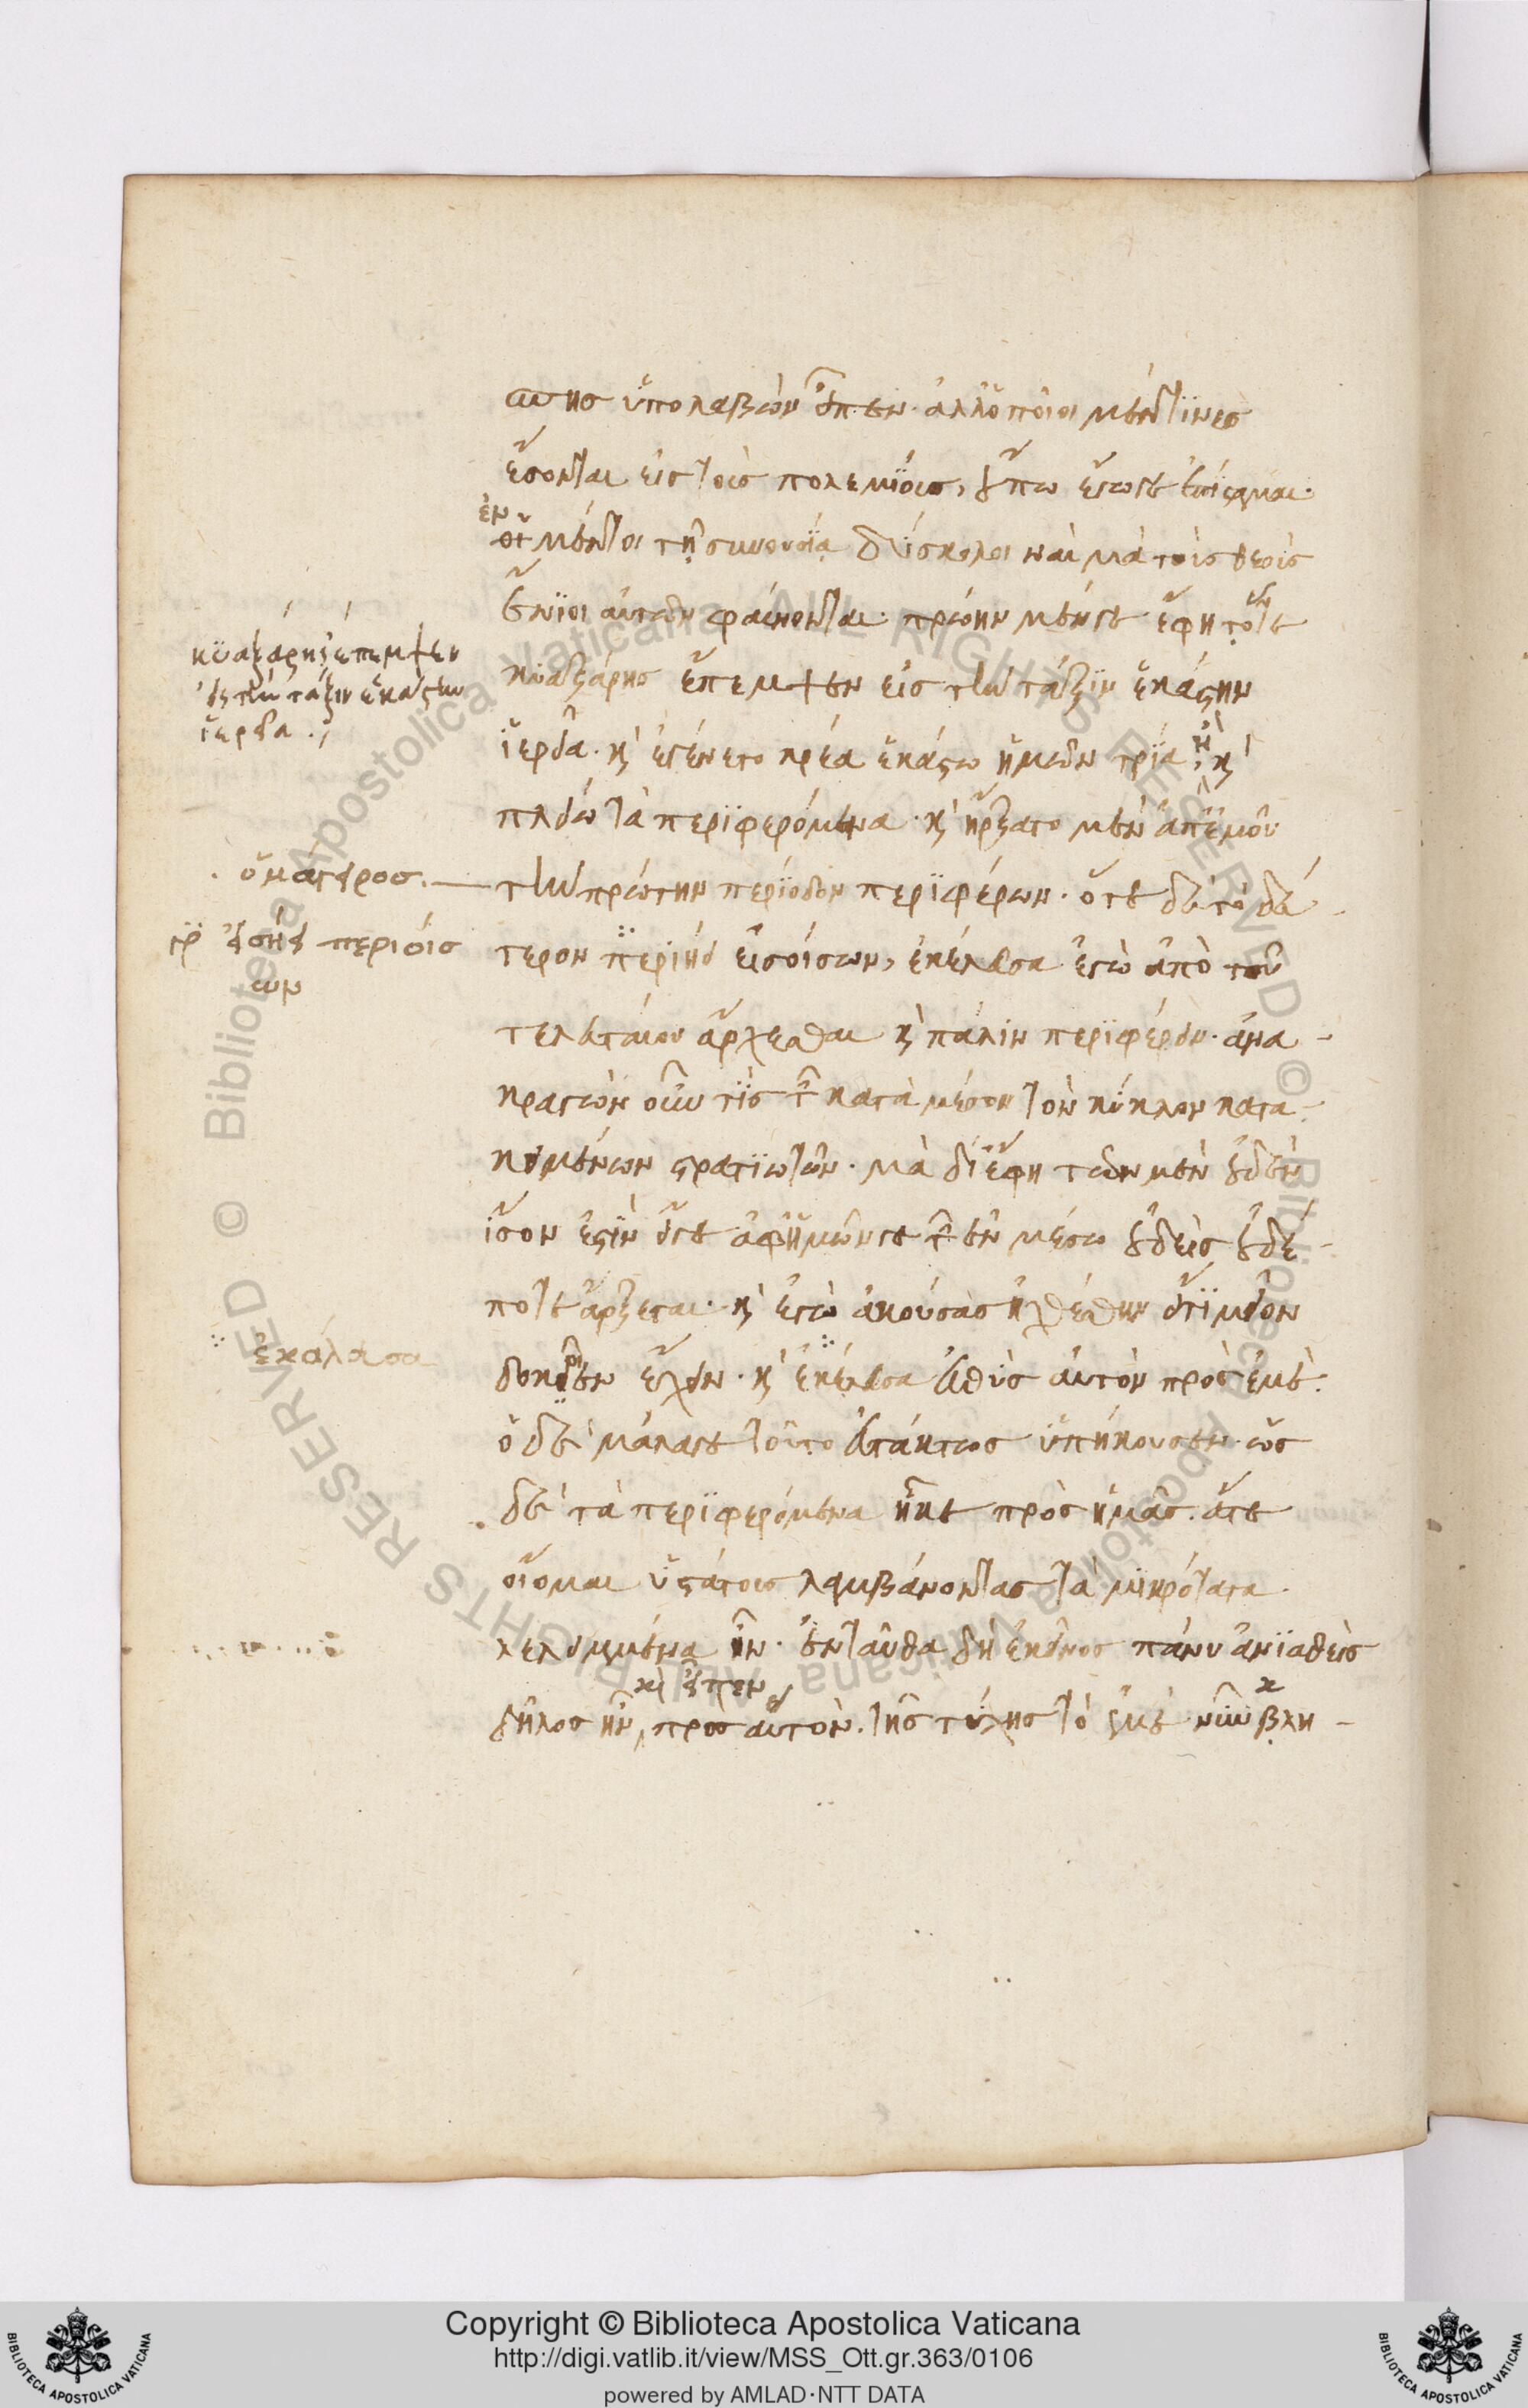 ώτης ὑπολαβὼν εἶπεν· ἀλλ' ὁποῖοι μέν τινες
ἔσονται εἰς τοὺς πολεμίους, οὔπω ἔγωγε ἐπίσταμαι·
ἐν
μέντοι τῇ συνουσίᾳ δύσκολοι ναὶ μὰ τοὺς θεοὺς
ἔνιοι αὐτῶν φαίνονται· πρώην μέν γε ἔφη
κυαξάρης ἔπεμψεν εἰς τὴν τάξιν ἑκάστην
ἱερεῖα· καὶ ἐγένετο κρέα ἑκάστῳ ἡμῶν τρία ἢ καὶ
πλείω τὰ περιφερόμενα· καὶ ἤρξατο μὲν ἀπ' ἐμοῦ
τὴν πρώτην περίοδον περιφέρων· ὅτε δὲ τὸ δεύ-
τερον περιῄει εἰσοίσων, ἐκέλευσα ἐγὼ ἀπὸ τοῦ
τελευταίου ἄρχεσθαι καὶ πάλιν περιφέρειν· ἀνα-
κραγὼν οὖν τις τῶν κατὰ μέσον τὸν κύκλον κατα-
κειμένων στρατιωτῶν· μὰ δί' ἔφη τῶν μὲν οὐδὲν
ἴσον ἐστὶν εἴγε ἀφ' ἡμῶν γε τῶν ἐν μέσῳ οὐδεὶς οὐδέ-
ποτε ἄρξεται· καὶ ἐγὼ ἀκούσας ἠχθέσθην εἴ τι μεῖον
ἔχειν· καὶ ἐκέλευσα εὐθὺς αὐτὸν πρὸς ἐμέ·
ὁ δὲ μάλα γε τοῦτο εὐτάκτως ὑπήκουσεν· ὡς
δὲ τὰ περιφερόμενα ἧκε πρὸς ἡμᾶς· ἅτε
οἶομαι ὑστάτους λαμβάνοντας τὰ μικρότατα
λελειμμένα ἦν· ἐνταῦθα δὴ ἐκεῖνος πάνυ ἀνιαθεὶς
καὶ εἶπεν
δῆλος ἦν πρὸς αὐτόν· τῆς τύχης τὸ ἐμὲ νῦν κλη-
κυαξάρης ἔπεμψεν
εἰς τὴν τάξιν ἑκάστην
ἱερεῖα
ὁ μάγειρος
εἰσῄει περιοίσ
ων
ἐκάλεσα
Copyright © Biblioteca Apostolica Vaticana
http://digi.vatlib.it/view/MSS_Ott.gr.363/0106
powered by AMLAD·NTT DATA